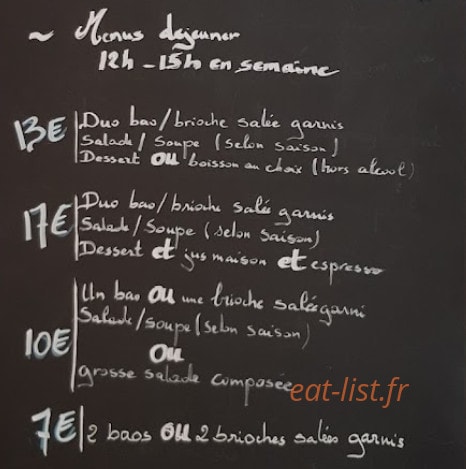 ~ Menus dejeuner
12h - 15h en semaine
13€ Duo bao/brioche salée garnis
Salade/Soupe (selon saison)
Dessert OU boisson au choix (hors alcool)
17€ Duo bao/brioche salée garnis
Salade/Soupe (selon saison)
Dessert et jus maison et espresso
10€ Un bao OU une brioche salée garni
Salade/soupe (selon saison)
OU
grosse salade composée
eat-list.fr
7€ 2 baos OU 2 brioches salées garnis